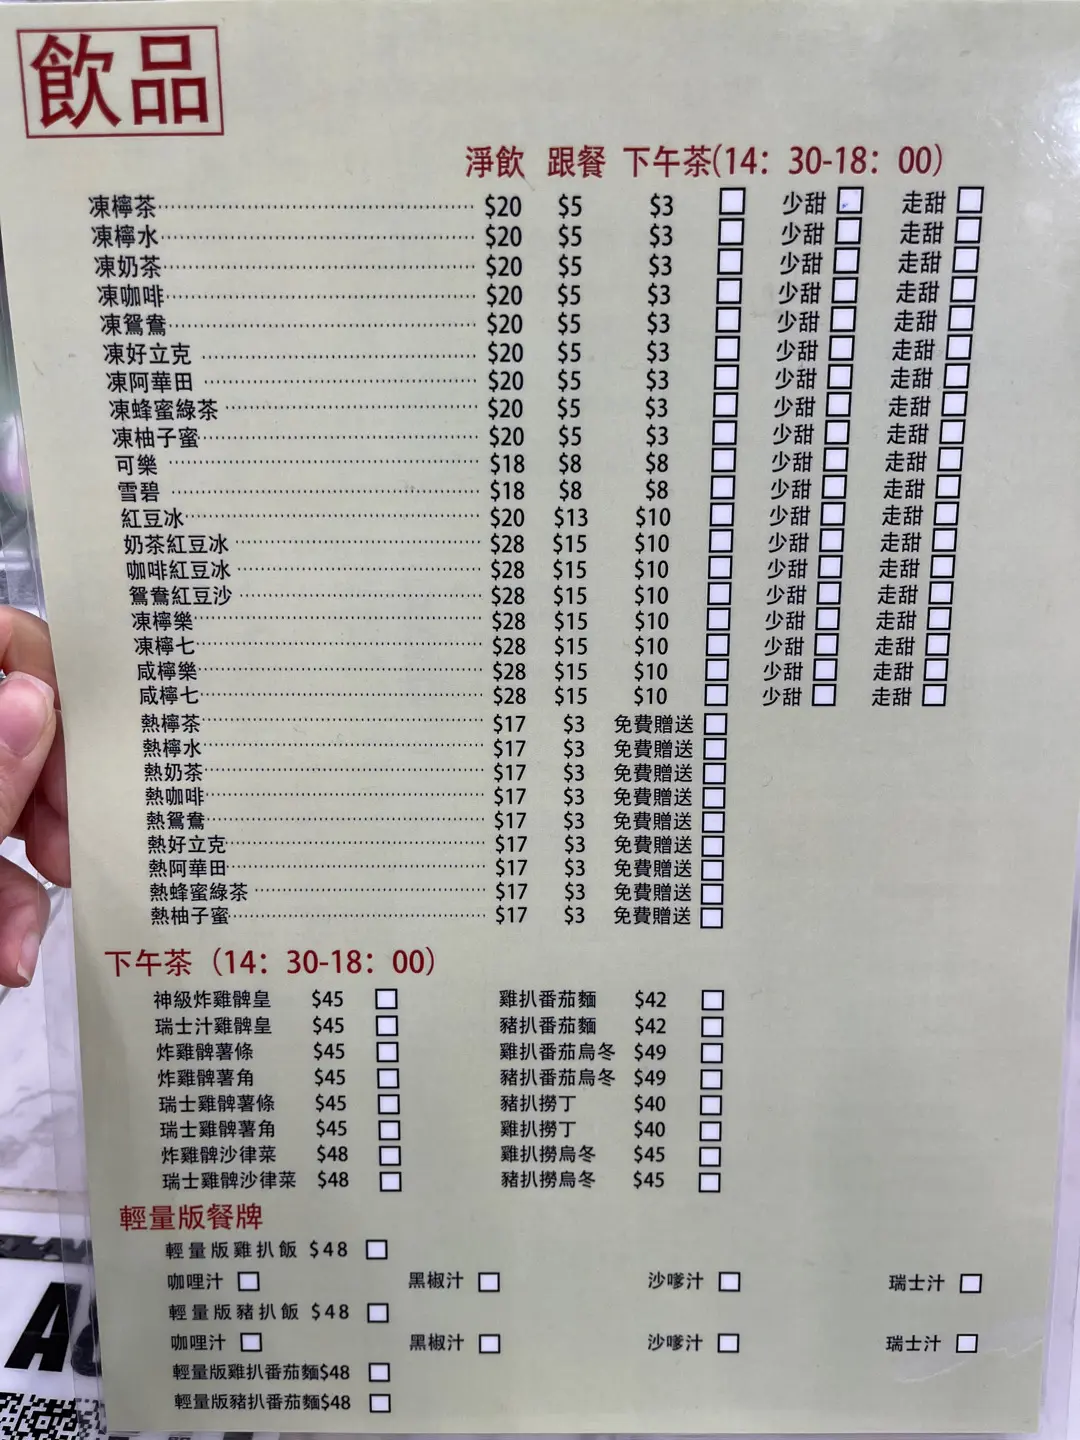 飲品
淨飲 跟餐 下午茶(14：30-18：00)
凍檸茶 $20 $5 $3 少甜 走甜
凍檸水 $20 $5 $3 少甜 走甜
凍奶茶 $20 $5 $3 少甜 走甜
凍咖啡 $20 $5 $3 少甜 走甜
凍鴛鴦 $20 $5 $3 少甜 走甜
凍好立克 $20 $5 $3 少甜 走甜
凍阿華田 $20 $5 $3 少甜 走甜
凍蜂蜜綠茶 $20 $5 $3 少甜 走甜
凍柚子蜜 $20 $5 $3 少甜 走甜
可樂 $18 $8 $8 少甜 走甜
雪碧 $18 $8 $8 少甜 走甜
紅豆冰 $20 $13 $10 少甜 走甜
奶茶紅豆冰 $28 $15 $10 少甜 走甜
咖啡紅豆冰 $28 $15 $10 少甜 走甜
鴛鴦紅豆沙 $28 $15 $10 少甜 走甜
凍檸樂 $28 $15 $10 少甜 走甜
凍檸七 $28 $15 $10 少甜 走甜
咸檸樂 $28 $15 $10 少甜 走甜
咸檸七 $28 $15 $10 少甜 走甜
熱檸茶 $17 $3 免費贈送
熱檸水 $17 $3 免費贈送
熱奶茶 $17 $3 免費贈送
熱咖啡 $17 $3 免費贈送
熱鴛鴦 $17 $3 免費贈送
熱好立克 $17 $3 免費贈送
熱阿華田 $17 $3 免費贈送
熱蜂蜜綠茶 $17 $3 免費贈送
熱柚子蜜 $17 $3 免費贈送
下午茶（14：30-18：00）
神級炸雞髀皇 $45 雞扒番茄麵 $42
瑞士汁雞髀皇 $45 豬扒番茄麵 $42
炸雞髀薯條 $45 雞扒番茄烏冬 $49
炸雞髀薯角 $45 豬扒番茄烏冬 $49
瑞士雞髀薯條 $45 豬扒撈丁 $40
瑞士雞髀薯角 $45 雞扒撈丁 $40
炸雞髀沙律菜 $48 雞扒撈烏冬 $45
瑞士雞髀沙律菜 $48 豬扒撈烏冬 $45
輕量版餐牌
輕量版雞扒飯 $48
咖哩汁 黑椒汁 沙嗲汁 瑞士汁
輕量版豬扒飯 $48
咖哩汁 黑椒汁 沙嗲汁 瑞士汁
輕量版雞扒番茄麵$48
輕量版豬扒番茄麵$48